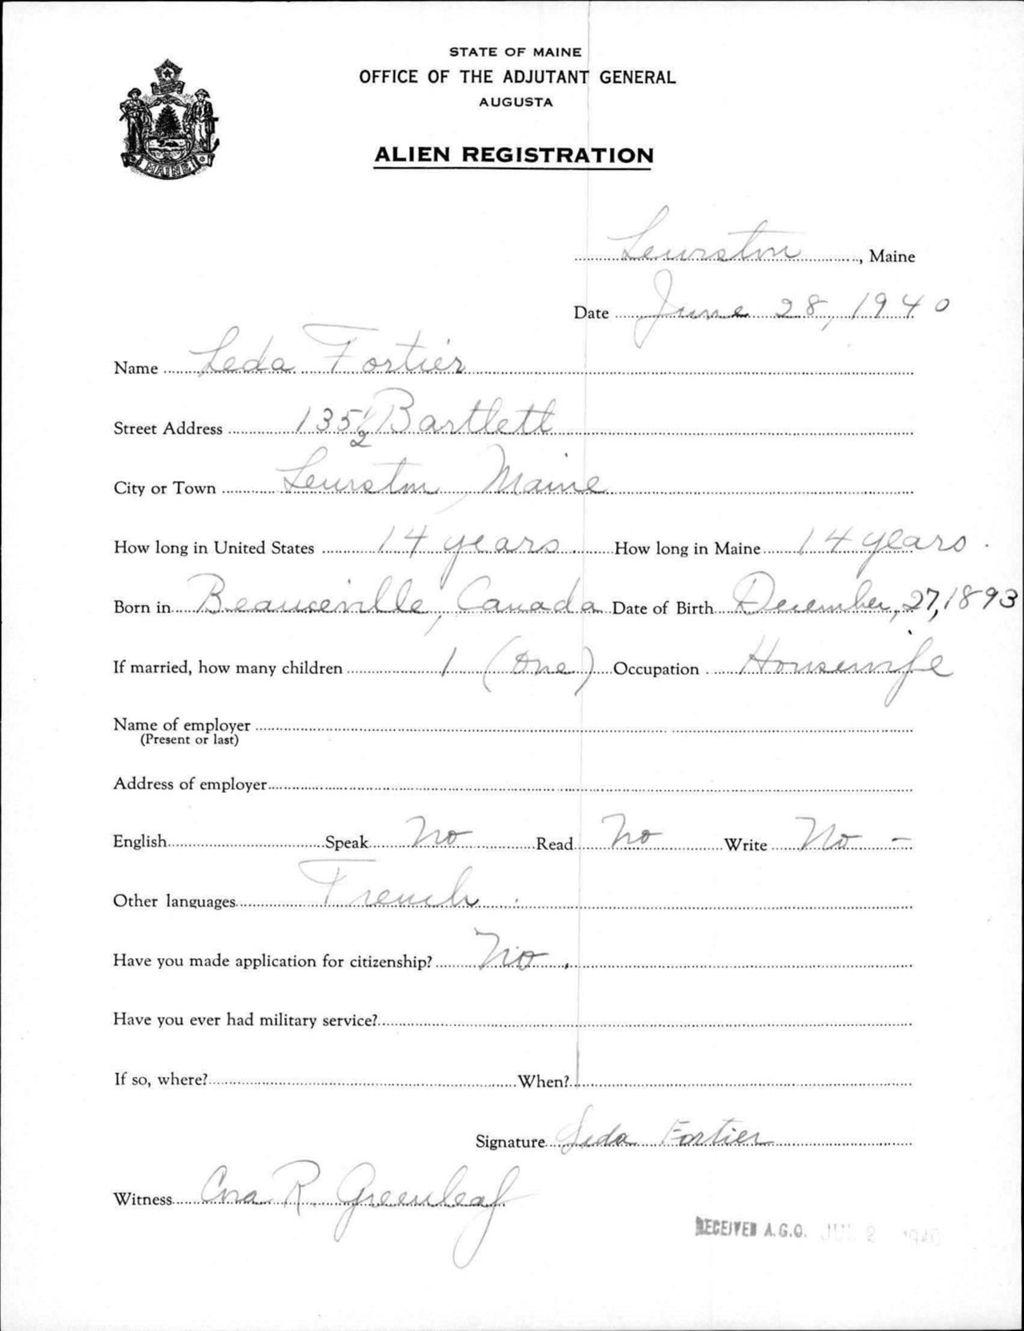 STATE OF MAINE
OFFICE OF THE ADJUTANT GENERAL
AUGUSTA
ALIEN REGISTRATION
MAINE
Lewiston, Maine
Date June 28, 1940
Name Leda Fortier
Street Address 135 1/2 Bartlett
City or Town Lewiston, Maine
How long in United States 14 years How long in Maine 14 years.
Born in Beauceville, Canada Date of Birth December, 27, 1893
If married, how many children 1 (One) Occupation Housewife
Name of employer
(Present or last)
Address of employer
English Speak No Read No Write No -
Other languages French.
Have you made application for citizenship? No.
Have you ever had military service?
If so, where? When?
Signature Leda Fortier
Witness Cora R. Greenleaf
RECEIVED A.G.O. JUL 2 1940